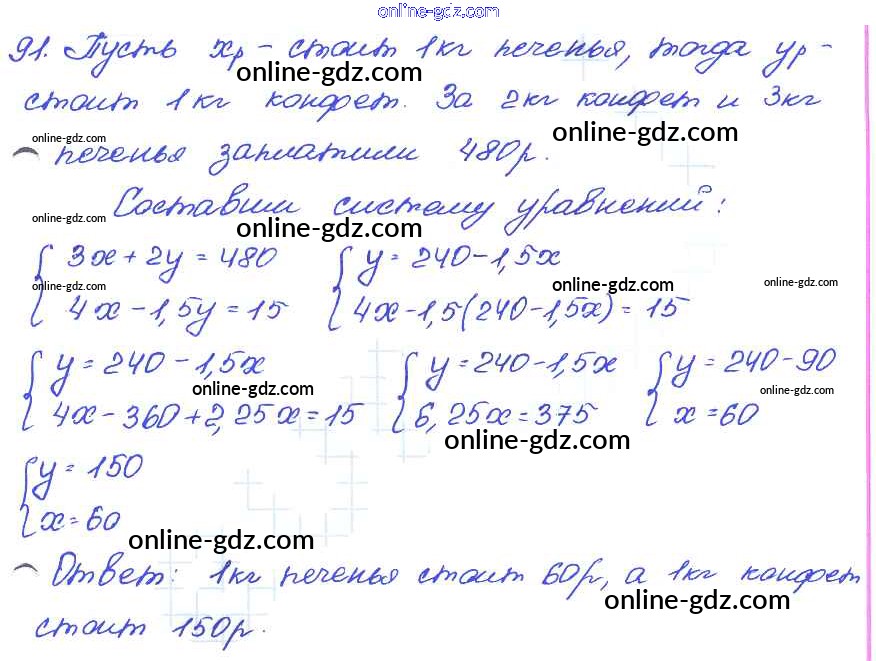 online-gdz.com
91. Пусть xр - стоит 1кг печенья, тогда yр -
online-gdz.com
стоит 1кг конфет. За 2кг конфет и 3кг
online-gdz.com
online-gdz.com
печенья заплатили 480р.
Составим систему уравнений:
online-gdz.com
online-gdz.com
{ 3x + 2y = 480 { y = 240 - 1,5x
online-gdz.com online-gdz.com online-gdz.com
4x - 1,5y = 15 4x - 1,5(240 - 1,5x) = 15
{ y = 240 - 1,5x { y = 240 - 1,5x { y = 240 - 90
online-gdz.com online-gdz.com
4x - 360 + 2,25x = 15 6,25x = 375 x = 60
online-gdz.com
{ y = 150
x = 60
online-gdz.com
Ответ: 1кг печенья стоит 60р, а 1кг конфет
online-gdz.com
стоит 150р.